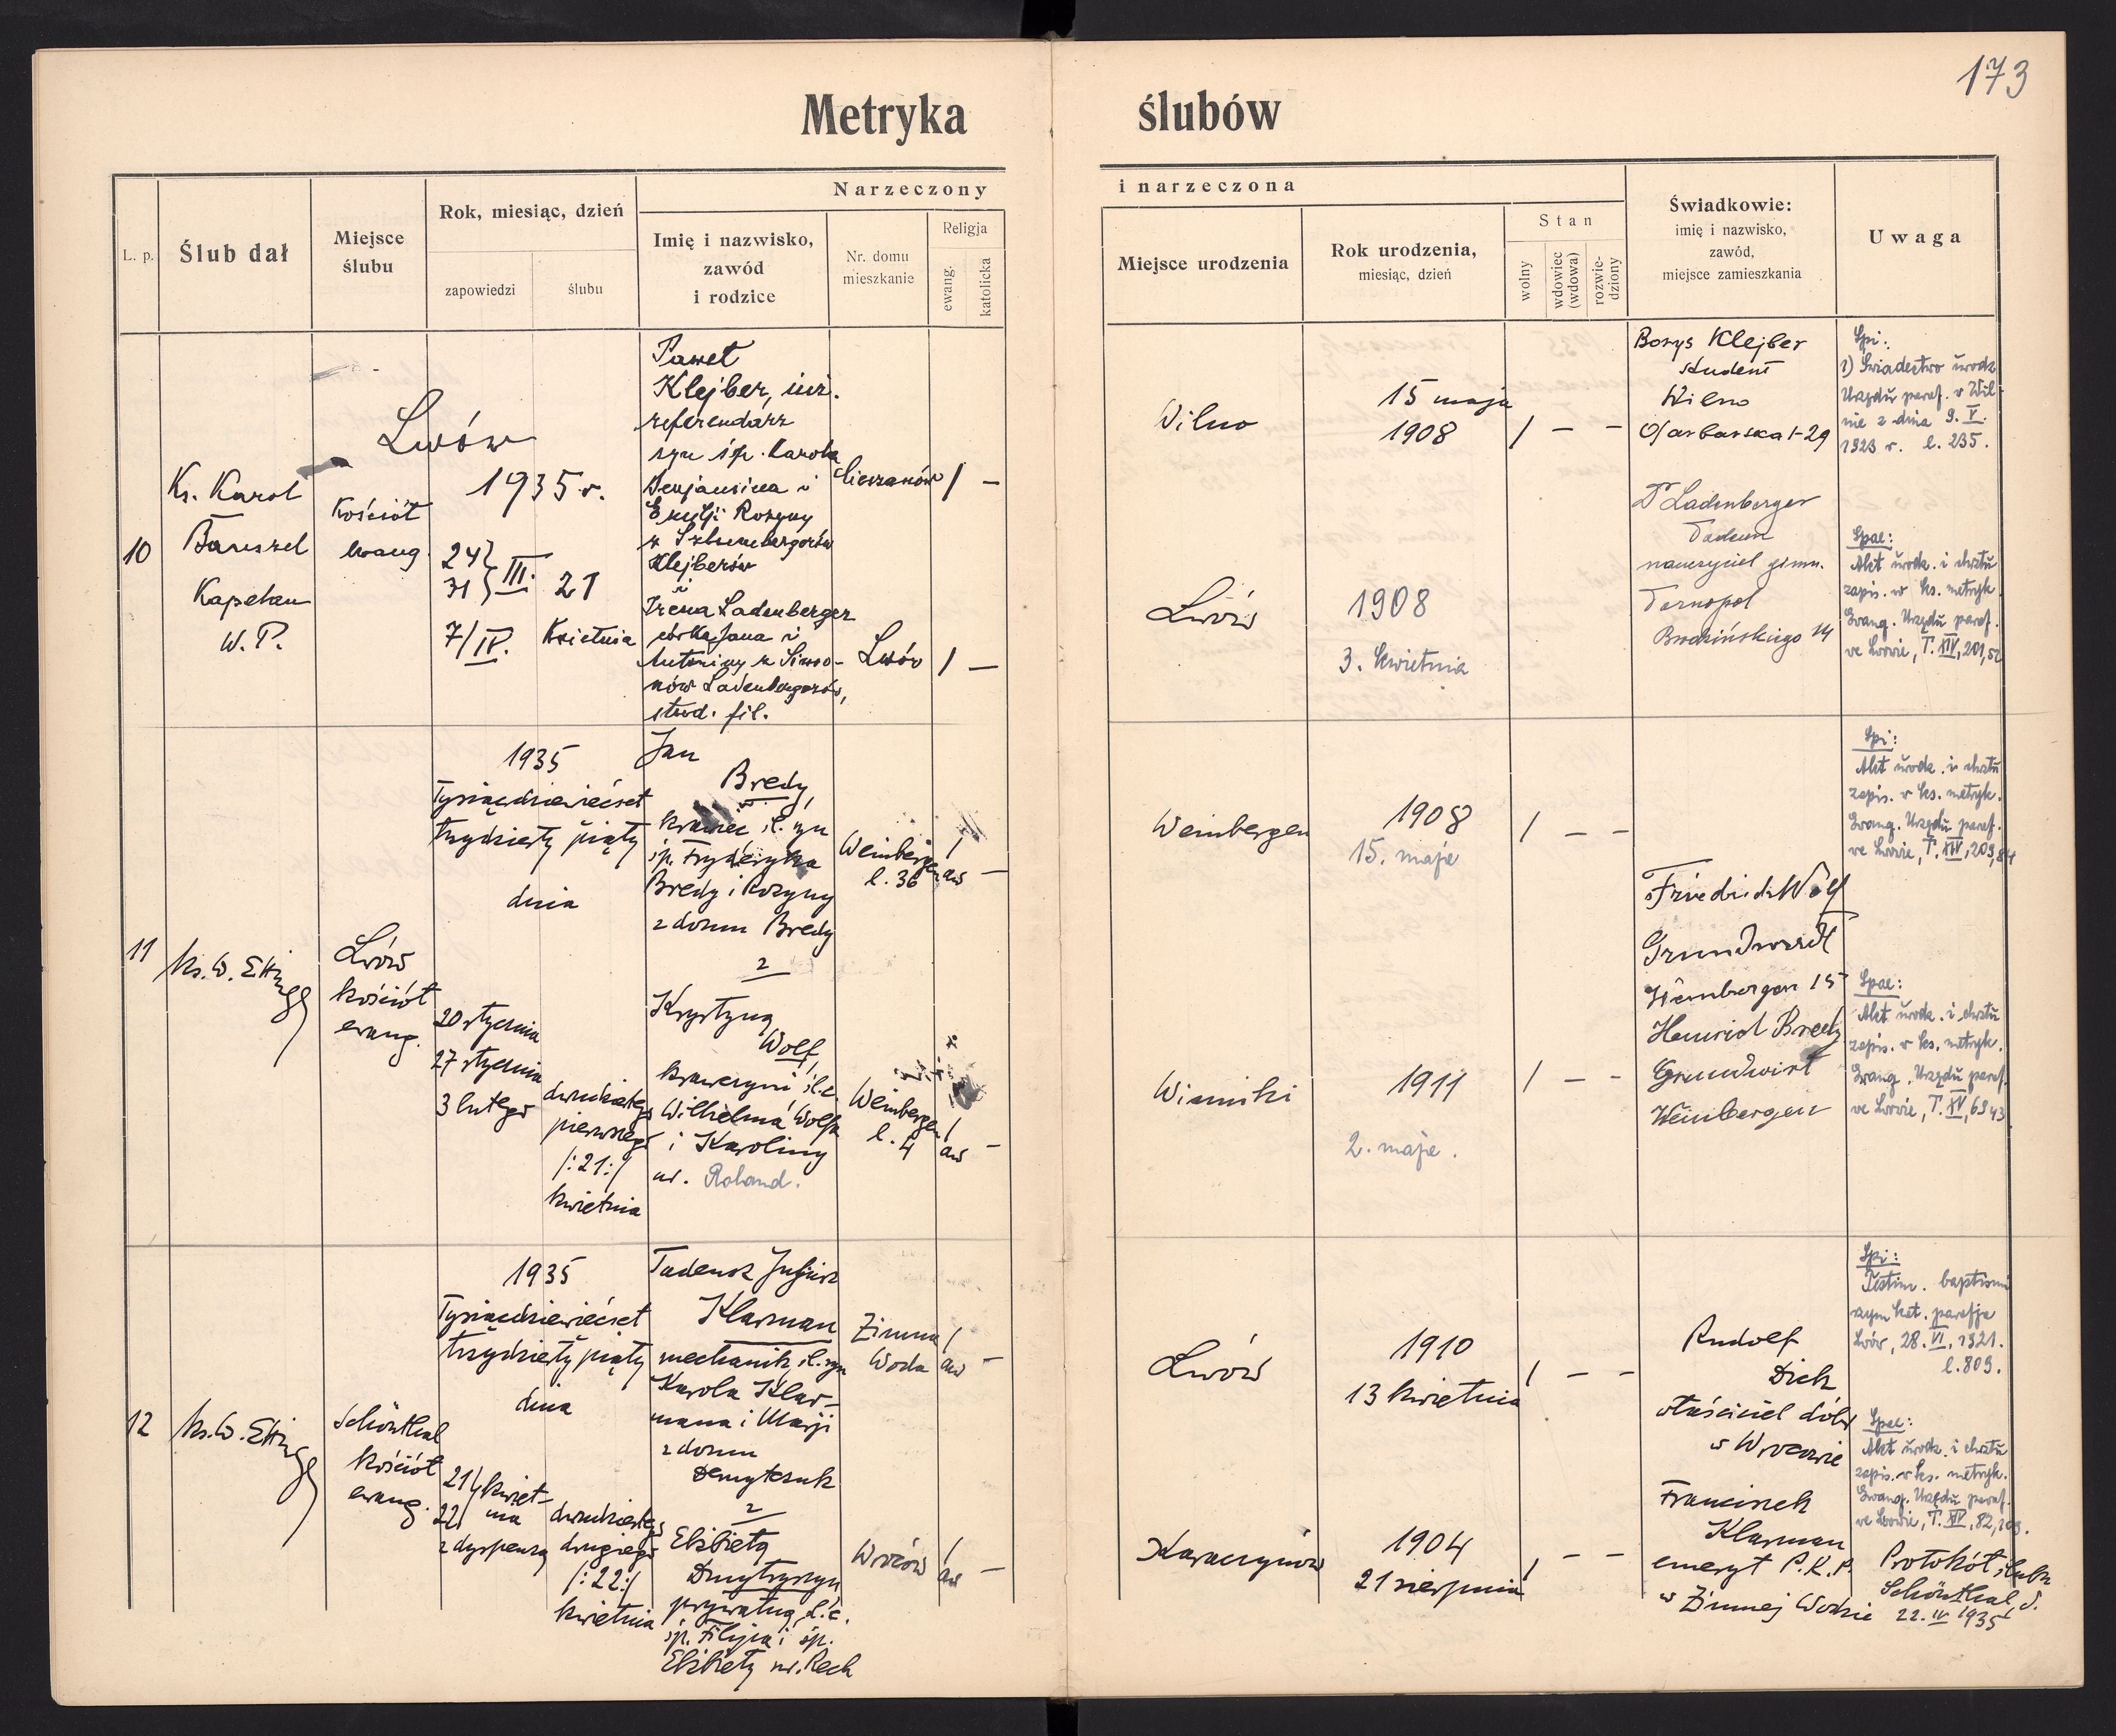 173
Metryka ślubów
Narzeczony i narzeczona
L. p.
Ślub dał
Miejsce
ślubu
Rok, miesiąc, dzień
zapowiedzi
ślubu
Imię i nazwisko,
zawód
i rodzice
Nr. domu
mieszkanie
Religja
ewang.
katolicka
Miejsce urodzenia
Rok urodzenia,
miesiąc, dzień
Stan
wolny
wdowiec
(wdowa)
rozwie-
dziony
Świadkowie:
imię i nazwisko,
zawód,
miejsce zamieszkania
Uwaga
10
Ks. Karol
Banszel
Kapelan
W. P.
Lwów
Kościół
ewang.
1935 r.
24 }
31 } III.
7/IV.
21
Kwietnia
Paweł
Klejber, inż.
referendarz
syn śp. Karola
Benjamina i
Emilji Rozyny
Klejberów
i
Irena Ladenberger
córka Jana i
Antoniny z Simo-
nów Ladenbergerów,
stud. fil.
Cieszanów
/ –
Lwów
/ –
Wilno
15 maja
1908
/ – –
Lwów
1908
3. kwietnia
Borys Klejber
student
Wilno
Dr Ladenberger
Tadeusz
nauczyciel gimn.
Tarnopol
Brodzińskiego 14
Spi:
1) Świadectwo urodz.
Urzędu paraf. w Wil-
nie z dnia 9. V.
1923 r. l. 235.
Spae:
Akt urodz. i chrztu
zapis. w ks. metryk.
Ewang. Urzędu paraf.
we Lwowie, T. XIV, 201, 52
11
ks. W. Ettinger
Lwów
kościół
ewang.
1935
Tysiącdziewięćset
trzydziesty piąty
dnia
20 stycznia
27 stycznia
3 lutego
dwudziestego
pierwszego
/:21:/
kwietnia
Jan
Bredy,
krawiec śl. syn
śp. Fryderyka
Bredy i Rozyny
z domu Bredy
z
Krystyną
Wolf,
krawczyni, śl. c.
Wilhelma Wolfa
i Karoliny
ur. Roland.
Weinbergen
l. 36
/
aw –
Weinbergen
l. 4
/
aw –
Weinbergen
1908
15. maja
/ – –
Winniki
1911
2. maja.
/ – –
Friedrich Wolf
Grundwirt
Weinbergen 15
Heinrich Bredy
Grundwirt
Weinbergen
Spi:
Akt urodz. i chrztu
zapis. w ks. metryk.
Ewang. Urzędu paraf.
we Lwowie, T. XIV, 209, 84
Spae:
Akt urodz. i chrztu
zapis. w ks. metryk.
Ewang. Urzędu paraf.
we Lwowie, T. XV, 69, 43.
12
ks. W. Ettinger
Schönthal
kościół
ewang.
1935
Tysiącdziewięćset
trzydziesty piąty
dnia
21 } kwiet-
22 } nia
z dyspenzą
dwudziestego
drugiego
/:22:/
kwietnia
Tadeusz Juljusz
Klarman
mechanik, śl. syn
Karola Klar-
mana i Marji
z domu
Demytczuk
z
Elżbietą
Dmytryszyn
prywatną, śl. c.
śp. Filipa i śp.
Elżbiety ur. Rech
Zimna
Woda
/
aw –
Wroców
/
aw –
Lwów
1910
13 kwietnia
/ – –
Karaczynów
1904
21 sierpnia
/ – –
Rudolf
Dick
właściciel dóbr
w Wrocowie
Franciszek
Klarman
emeryt P.K.P.
w Zimnej Wodzie
Spi:
Testim. baptismi
rzym. kat. parafja
Lwów, 28. VI. 1921.
l. 809.
Spae:
Akt urodz. i chrztu
zapis. w ks. metryk.
Ewang. Urzędu paraf.
we Lwowie, T. XIV, 82, 109.
Protokół ślubu
Schönthal d.
22. IV 1935